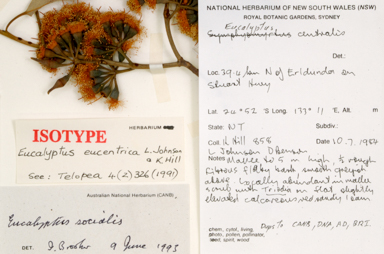 HERBARIUM
ISOTYPE
Eucalyptus eucentrica L. Johnson
& K. Hill
See: Telopea 4(2)326 (1991)
Australian National Herbarium (CANB)
Eucalyptus socialis
DET. I. Brooker 9 June 1993
NATIONAL HERBARIUM OF NEW SOUTH WALES (NSW)
ROYAL BOTANIC GARDENS, SYDNEY
Eucalyptus
centralis
Det.:
Loc. 39.0 km N of Erldunda on
Stuart Hwy
Lat. 24° 52 S Long. 133° 11 E Alt. m
State: NT Subdiv.:
Coll. K. Hill 858 Date 10.7.1984
L Johnson D Benson
Notes Mallee to 5 m high, rough
fibrous flaky bark smooth greyish
above locally abundant in mallee
scrub with Triodia on flat slightly
elevated calcareous red sandy loam
chem., cytol., living, Dups to CANB, DNA, AD, BRI.
photo, pollen, pollinator,
seed, spirit, wood